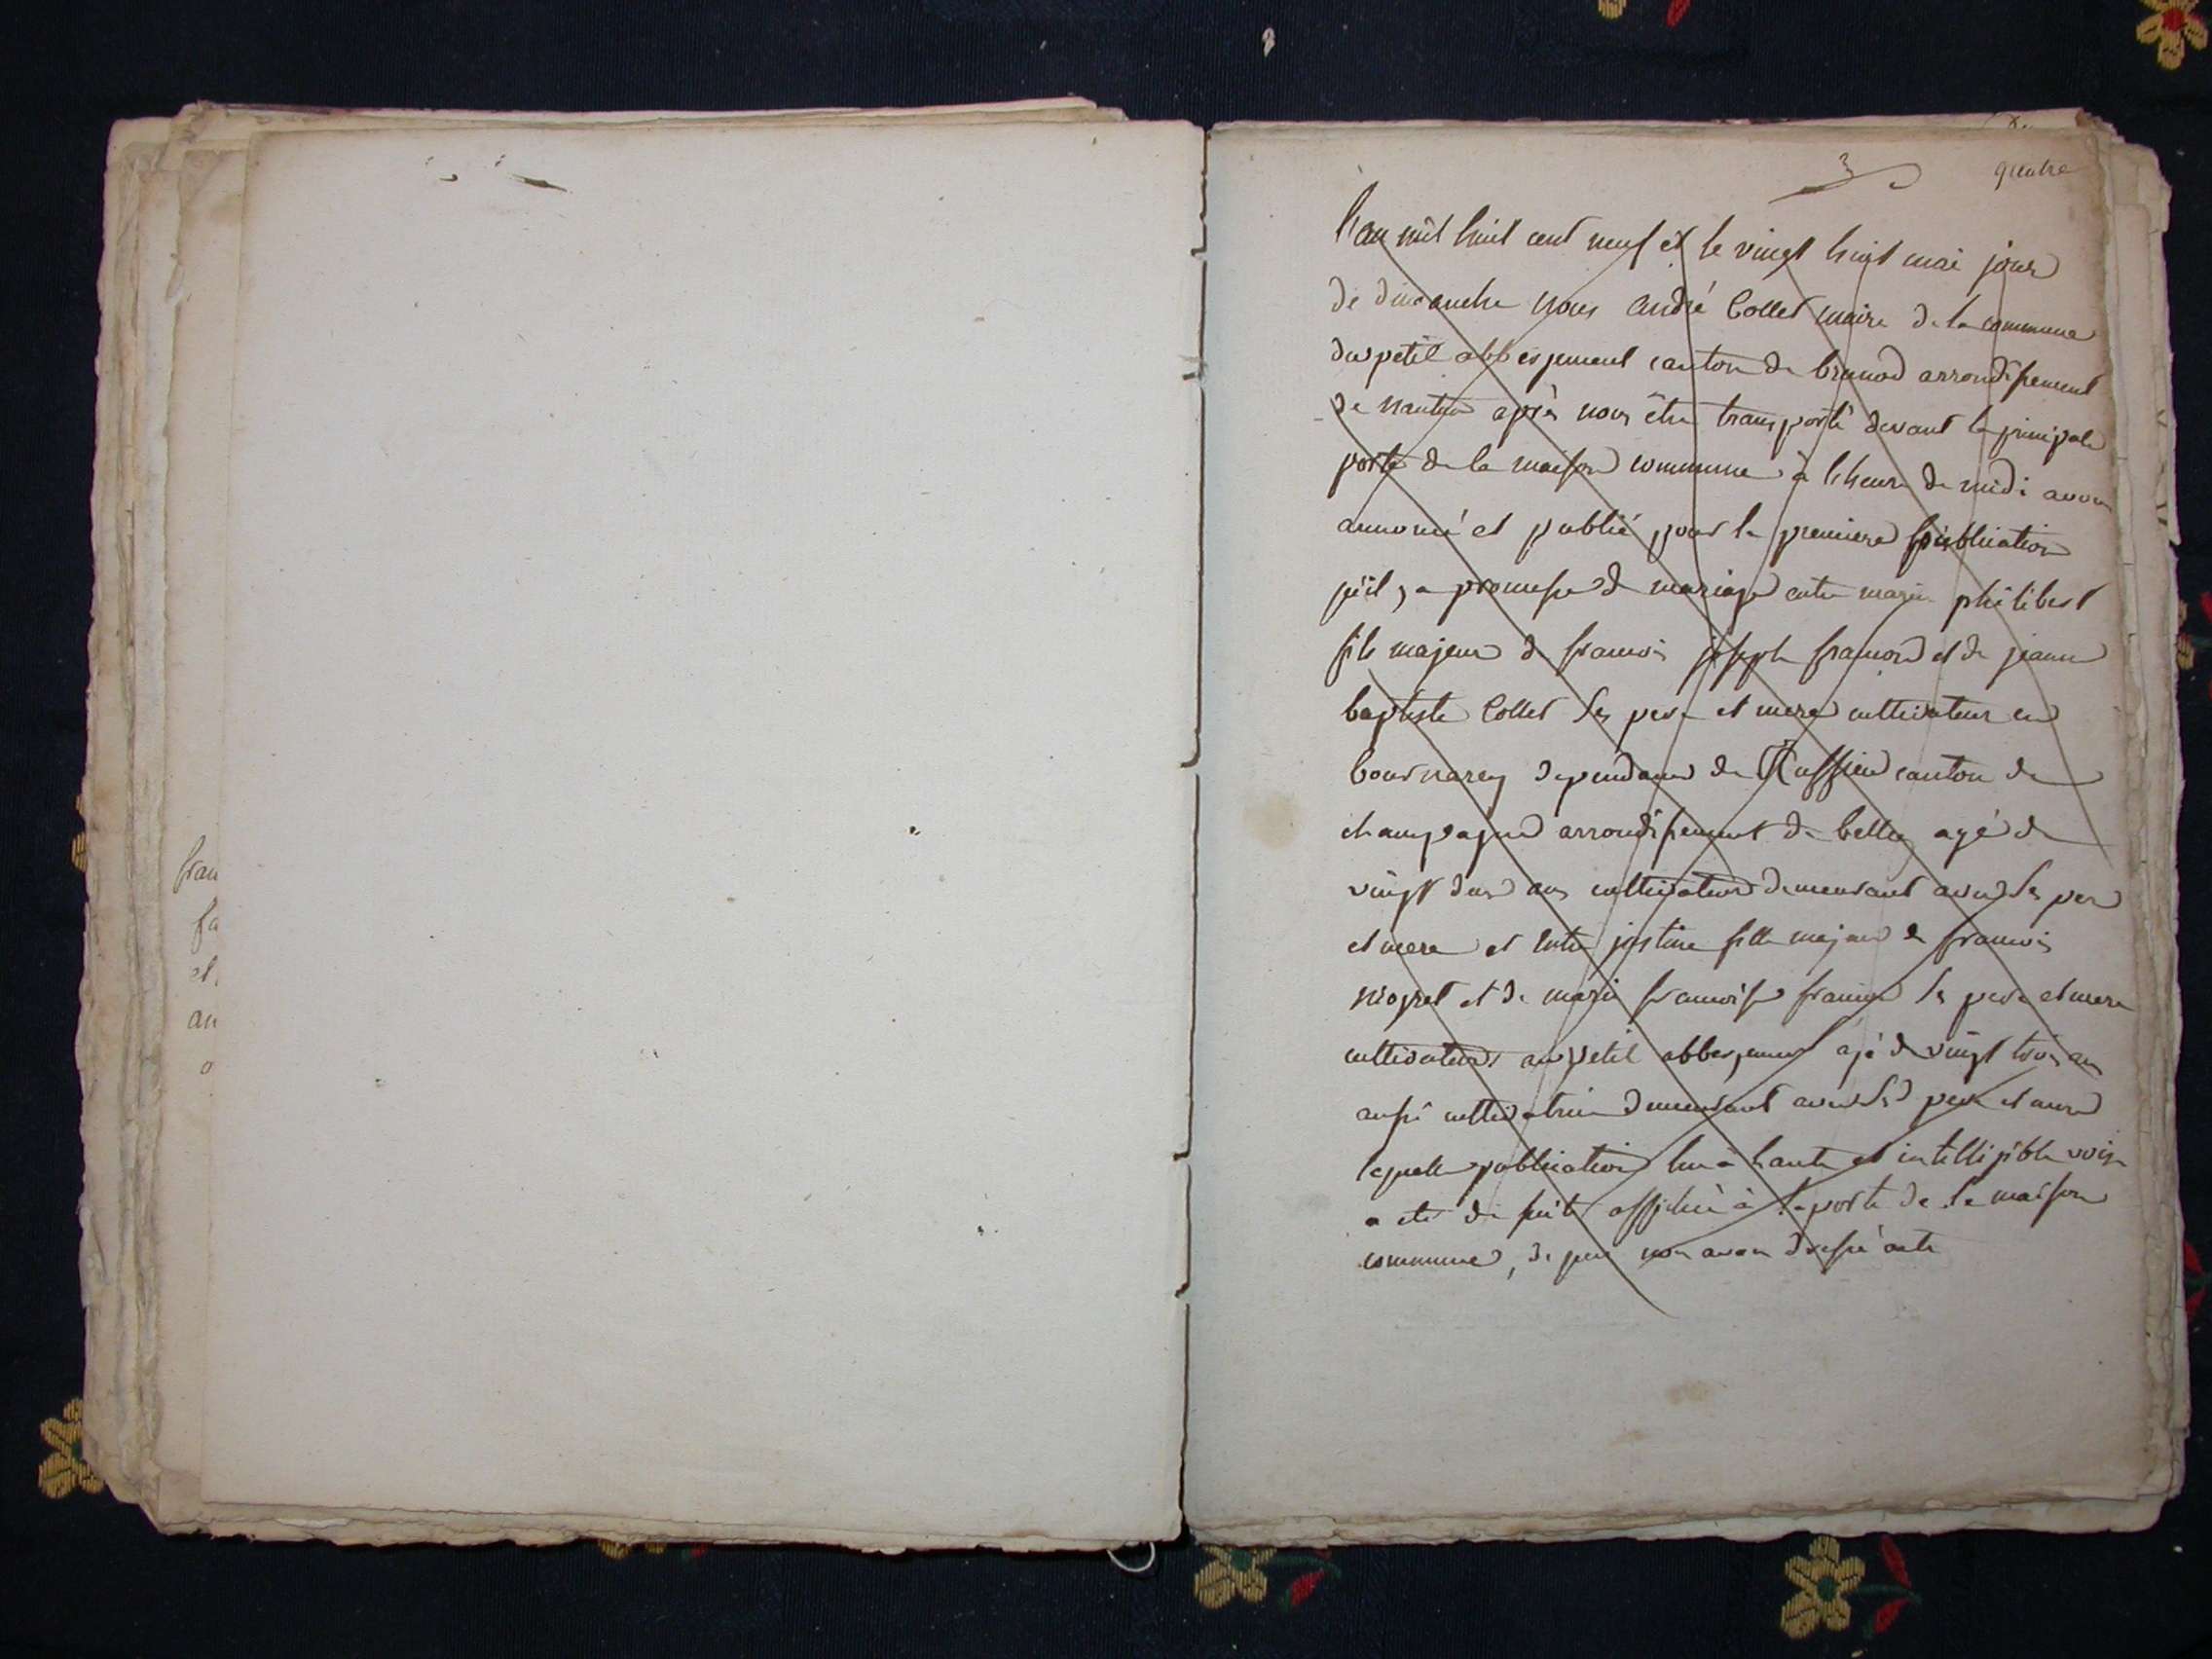 quatre
L'an mil huit cent neuf et le vingt huit mai jour
de dimanche nous andré Collet maire de la commune
du petit abbergement canton de brenod arrondissement
de nantua après nous être transporté devant la principale
porte de la maison commune à l'heure de midi avons
annoncé et publié pour la premiere publication
qu'il y a promesse de mariage entre marin philibert
fils majeur de francois joseph et de jeanne
baptiste Collet ses pere et mere cultivateur en
dependance de Ruffieu canton de
champagne arrondissement de belley agé de
vingt ans cultivateur demeurant avec ses pere
et mere et entre justine fille majeure de francois
et de marie francoise ses pere et mere
cultivateurs au petit abbergement agé de vingt trois ans
aussi cultivatrice demeurant avec ses pere et mere
laquelle publication lue à haute et intelligible voix
a eté de suite affichée à la porte de la maison
commune, de quoi nous avons dressé acte
fran
fa
et
an